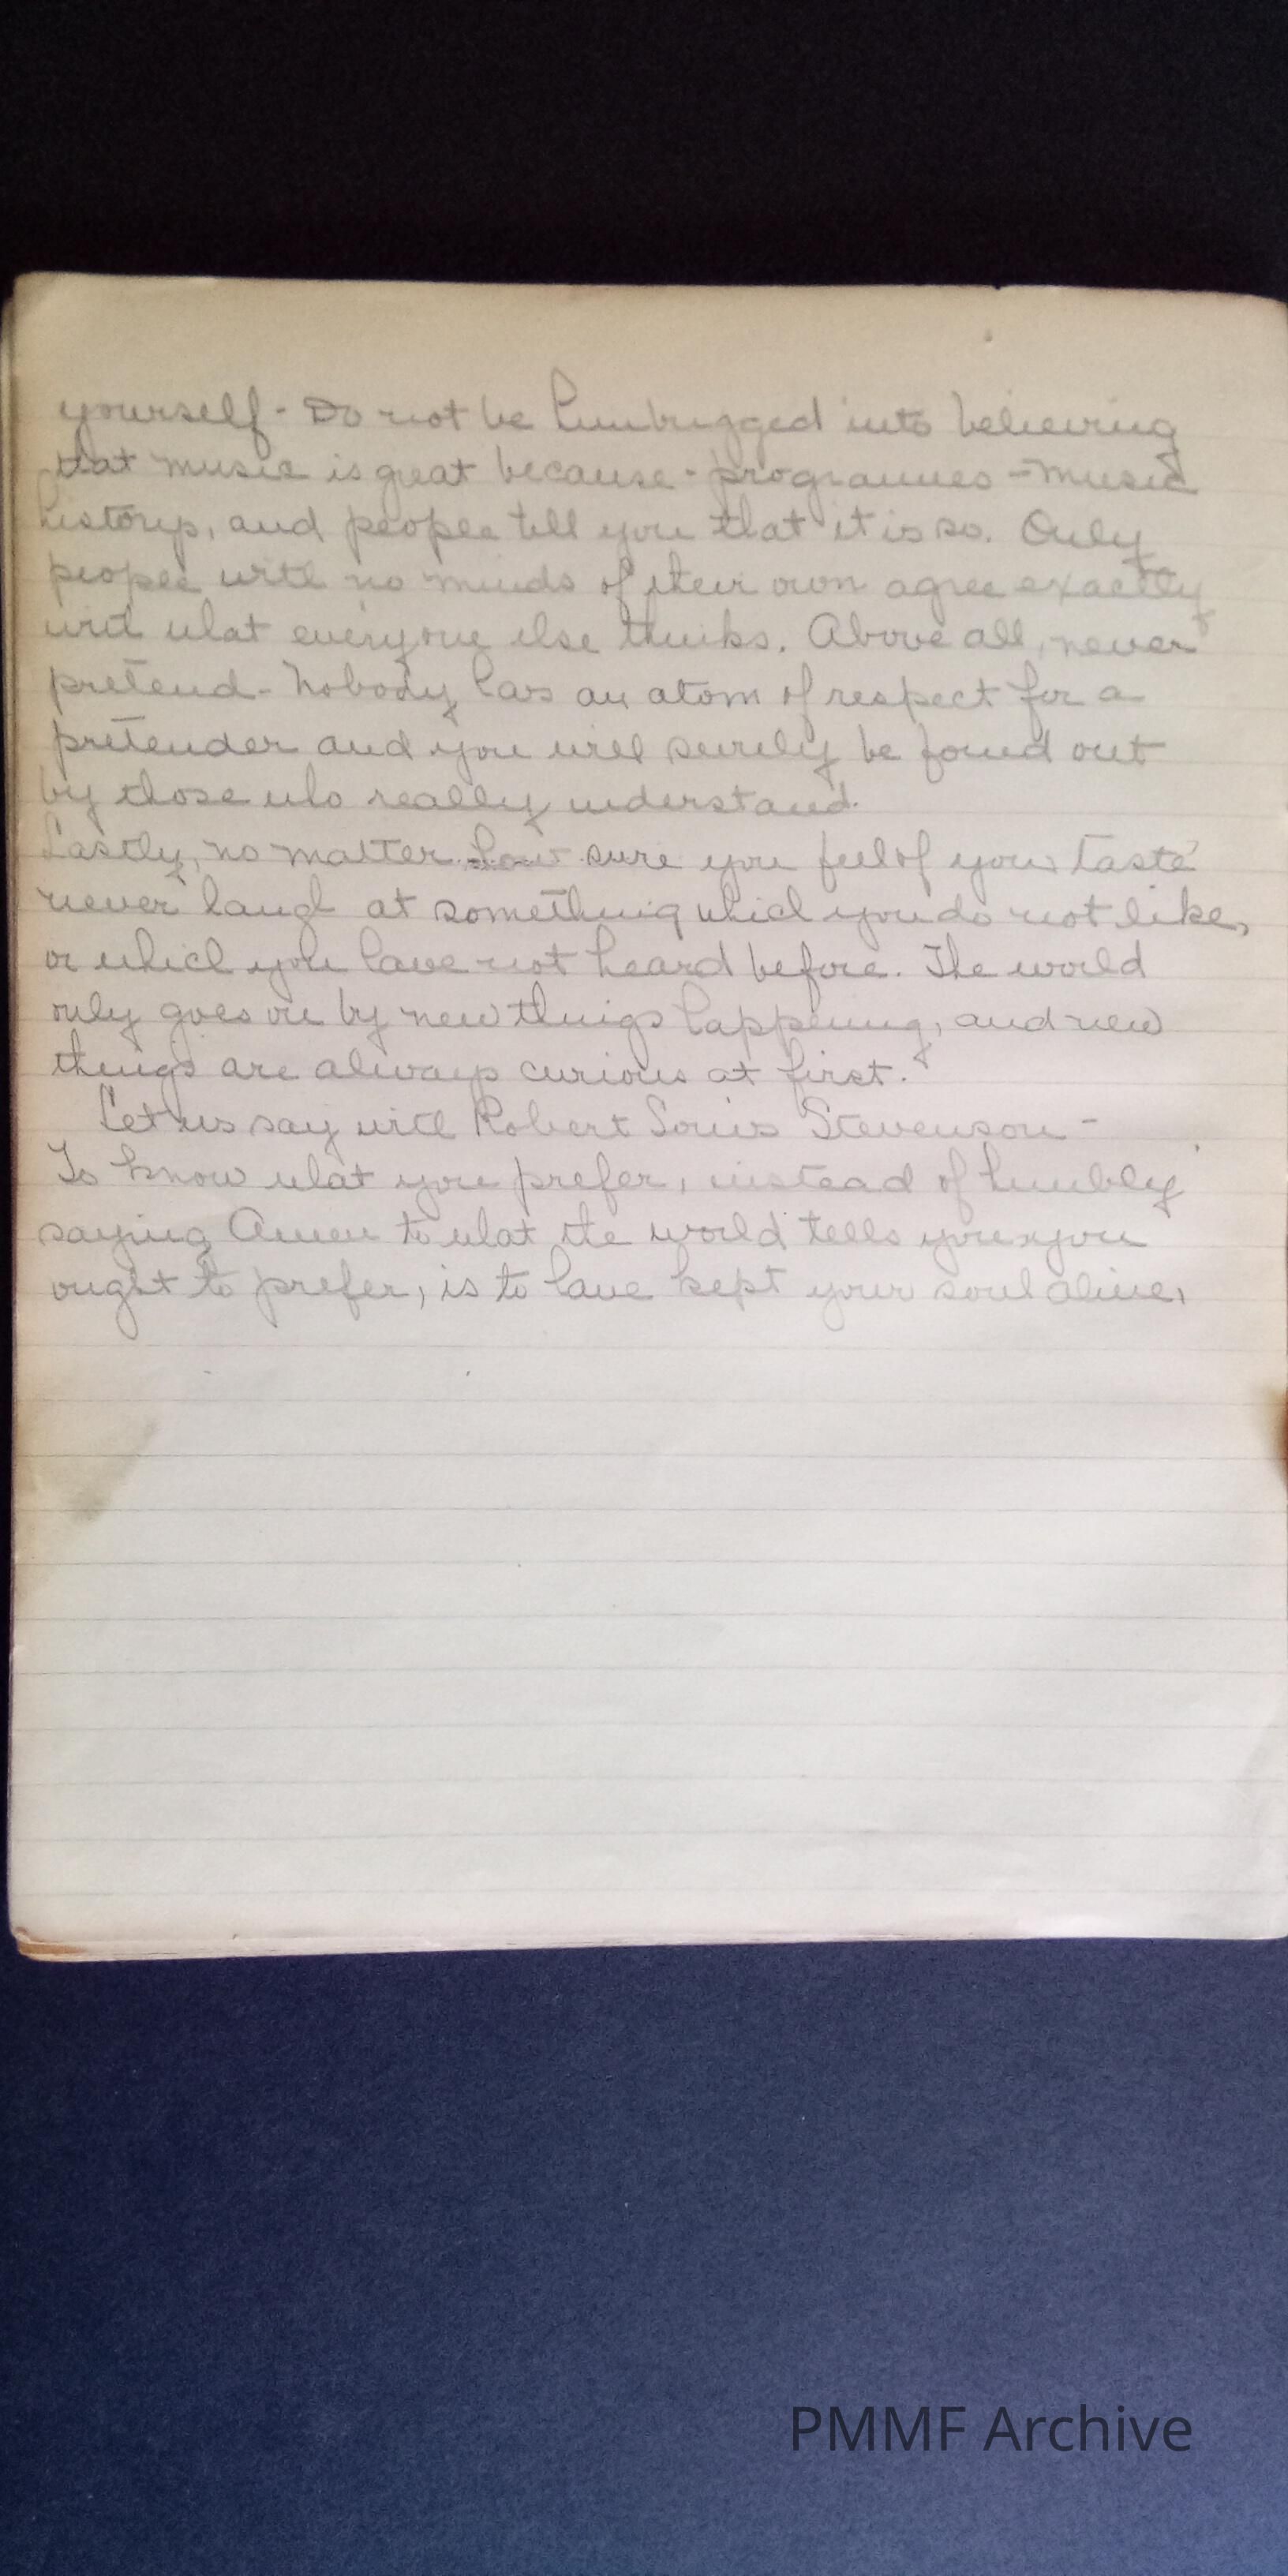 yourself - Do not be humbugged into believing
that music is great because - programmes - music
history, and people tell you that it is so. Only
people with no minds of their own agree exactly
with what everyone else thinks. Above all, never
pretend - Nobody has an atom of respect for a
pretender and you will surely be found out
by those who really understand.
Lastly, no matter how sure you feel of your taste
never laugh at something which you do not like,
or which you have not heard before. The world
only goes on by new things happening, and new
things are always curious at first.
Let us say with Robert Louis Stevenson -
To know what you prefer, instead of humbly
saying Amen to what the world tells you you
ought to prefer, is to have kept your soul alive.
PMMF Archive